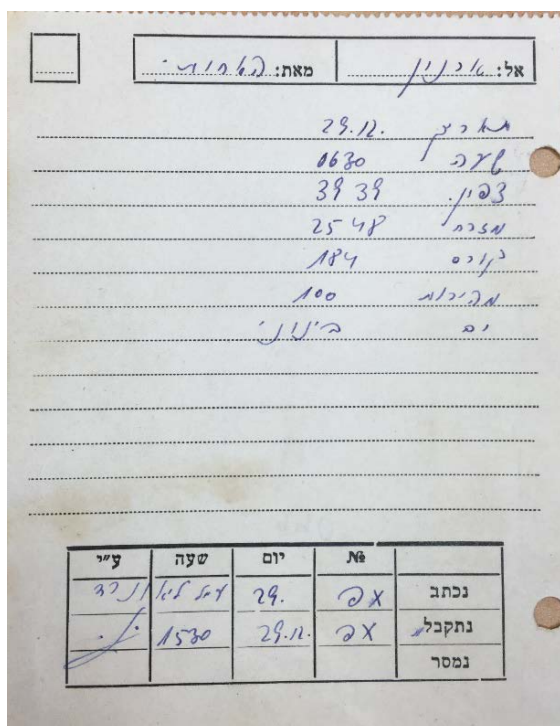 אל: ארנון מאת: האחות
תאריך 29.12.
שעה 0630
צפון. 39 39
מזרח 25 48
קורס 184
מהירות 100
ים בינוני
№ יום שעה ע״י
נכתב 29.
נתקבל 29.12. 1530
נמסר